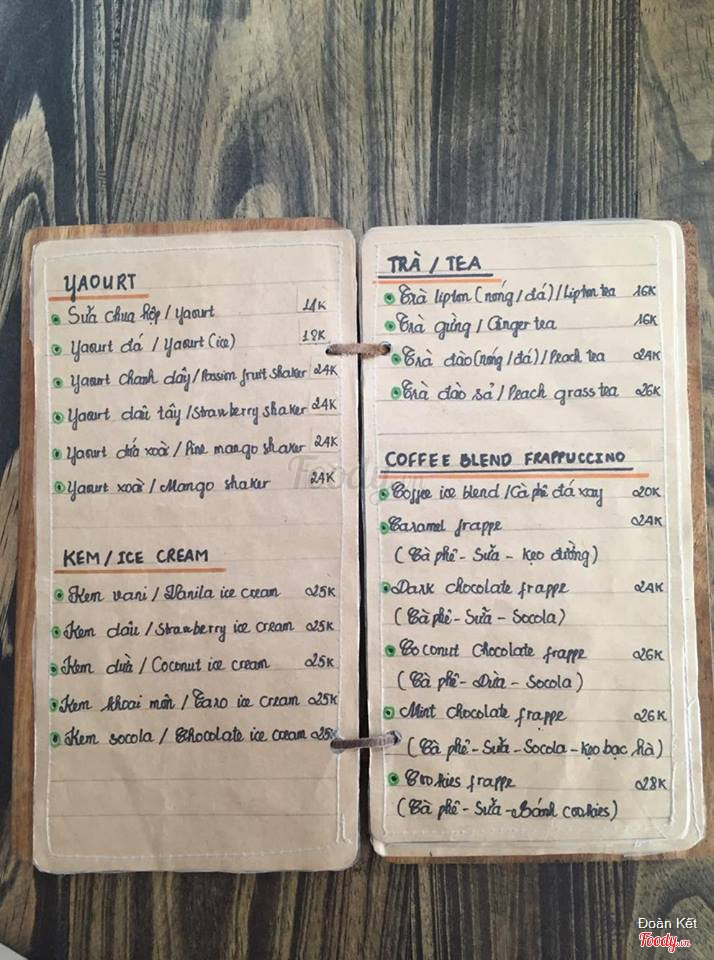 YAOURT
Sữa chua hộp / Yaourt 14K
Yaourt đá / Yaourt (ice) 18K
Yaourt chanh dây / Passion fruit shaker 24K
Yaourt dâu tây / Strawberry shaker 24K
Yaourt dứa xoài / Pine mango shaker 24K
Yaourt xoài / Mango shaker 24K
KEM / ICE CREAM
Kem vani / Vanila ice cream 25K
Kem dâu / Strawberry ice cream 25K
Kem dừa / Coconut ice cream 25K
Kem khoai môn / Taro ice cream 25K
Kem socola / Chocolate ice cream 25K
TRÀ / TEA
Trà lipton (nóng / đá) / Lipton tea 16K
Trà gừng / Ginger tea 16K
Trà đào (nóng / đá) / Peach tea 24K
Trà đào sả / Peach grass tea 26K
COFFEE BLEND FRAPPUCCINO
Coffee ice blend / Cà phê đá xay 20K
Caramel frappe 24K
(Cà phê - Sữa - Kẹo đường)
Dark chocolate frappe 24K
(Cà phê - Sữa - Socola)
Coconut Chocolate frappe 26K
(Cà phê - Dừa - Socola)
Mint chocolate frappe 26K
(Cà phê - Sữa - Socola - Kẹo bạc hà)
Cookies frappe 28K
(Cà phê - Sữa - Bánh cookies)
Foody.vn
Đoàn Kết
Foody.vn